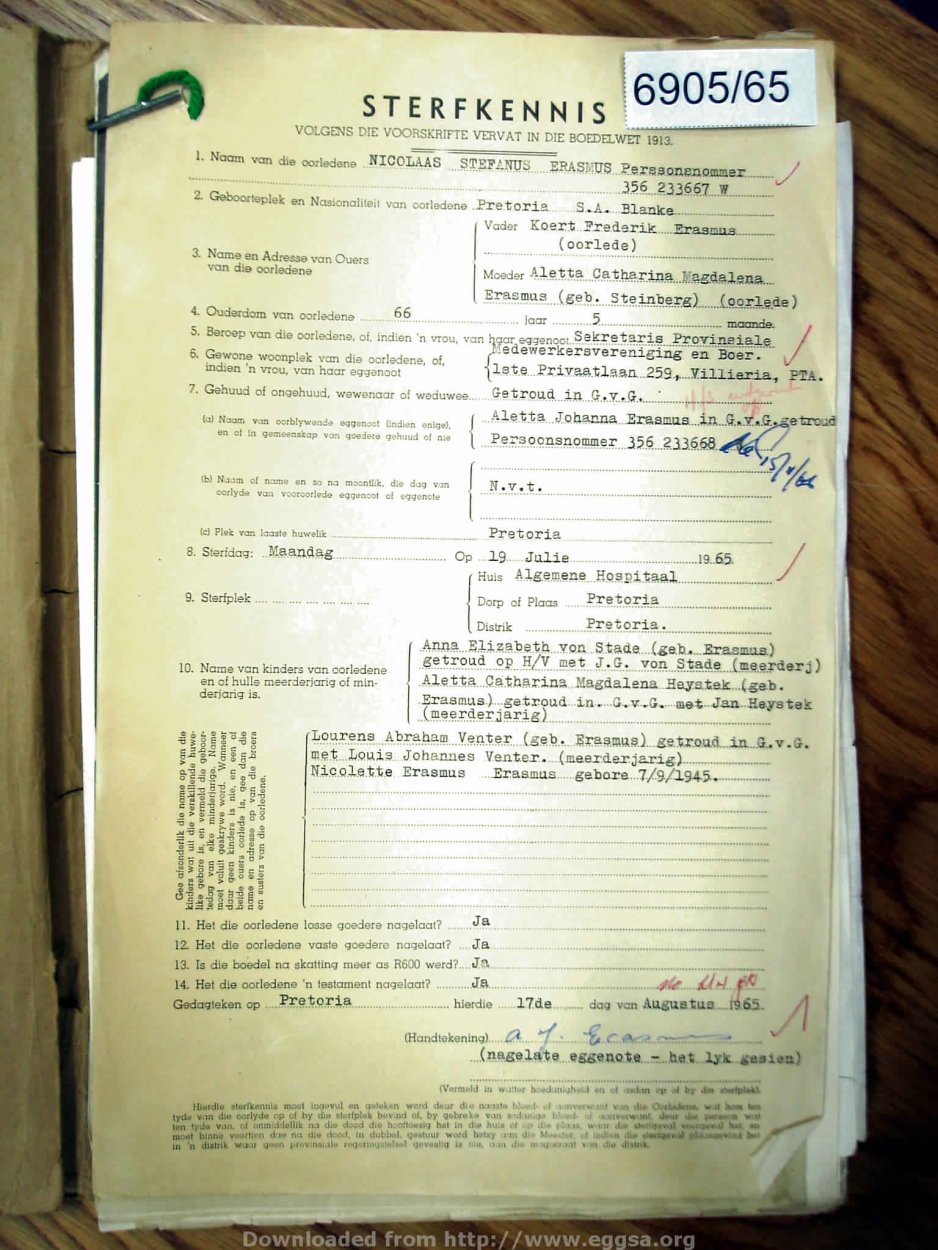 6905/65
STERFKENNIS
VOLGENS DIE VOORSKRIFTE VERVAT IN DIE BOEDELWET 1913.
1. Naam van die oorledene NICOLAAS STEFANUS ERASMUS Perssonsnommer
356 233667 W
2. Geboorteplek en Nasionaliteit van oorledene Pretoria S.A. Blanke
3. Name en Adresse van Ouers van die oorledene
Vader Koert Frederik Erasmus
(oorlede)
Moeder Aletta Catharina Magdalena
Erasmus (geb. Steinberg) (oorlede)
4. Ouderdom van oorledene 66 jaar 5 maande.
5. Beroep van die oorledene, of, indien 'n vrou, van haar eggenoot Sekretaris Provinsiale
Medewerkersvereniging en Boer.
6. Gewone woonplek van die oorledene, of,
indien 'n vrou, van haar eggenoot
1ste Privaatlaan 259, Villieria, PTA.
7. Gehuud of ongehuud, wewenaar of weduwee Getroud in G.v.G.
(a) Naam van oorblywende eggenoot (indien enige),
en of in gemeenskap van goedere gehuud of nie
Aletta Johanna Erasmus in G.v.G. getroud
Persoonsnommer 356 233668
(b) Naam of name en so na moontlik, die dag van
oorlyde van vooroorlede eggenoot of eggenote
N.v.t.
(c) Plek van laaste huwelik Pretoria
8. Sterfdag: Maandag Op 19 Julie 1965.
9. Sterfplek
Huis Algemene Hospitaal
Dorp of Plaas Pretoria
Distrik Pretoria.
10. Name van kinders van oorledene
en of hulle meerderjarig of min-
derjarig is.
Anna Elizabeth von Stade (geb. Erasmus)
getroud op H/V met J.G. von Stade (meerderj)
Aletta Catharina Magdalena Heystek (geb.
Erasmus) getroud in. G.v.G. met Jan Heystek
(meerderjarig)
Gee afsonderlik die name op van die
kinders wat uit die verskillende huwe-
like gebore is, en vermeld die geboor-
tedag van elke minderjarige. Name
moet voluit geskrywe word. Wanneer
daar geen kinders is nie, en een of
beide ouers oorlede is, gee dan die
name en adresse op van die broers
en susters van die oorledene.
Lourens Abraham Venter (geb. Erasmus) getroud in G.v.G.
met Louis Johannes Venter. (meerderjarig)
Nicolette Erasmus Erasmus gebore 7/9/1945.
11. Het die oorledene losse goedere nagelaat? Ja
12. Het die oorledene vaste goedere nagelaat? Ja
13. Is die boedel na skatting meer as R600 werd? Ja
14. Het die oorledene 'n testament nagelaat? Ja
Gedagteken op Pretoria hierdie 17de dag van Augustus 1965.
(Handtekening) A. J. Erasmus
(nagelate eggenote - het lyk gesien)
(Vermeld in watter hoedanigheid en of aldan op of by die sterfplek).
Hierdie sterfkennis moet ingevul en geteken word deur die naaste bloed- of aanverwant van die Oorledene, wat hom ten
tyde van die oorlyde op of by die sterfplek bevind of, by gebreke van sodanige bloed- of aanverwant, deur die persoon wat
ten tyde van, of onmiddellik na die dood die hooftoesig het in die huis of op die plaas, waar die sterfgeval voorgeval het, en
moet binne veertien dae na die dood, in dubbel, gestuur word hetsy aan die Meester, of indien die sterfgeval plaasgevind het
in 'n distrik waar geen provinsiale regeringsetel gevestig is nie, aan die magistraat van die distrik.
Downloaded from http://www.eggsa.org